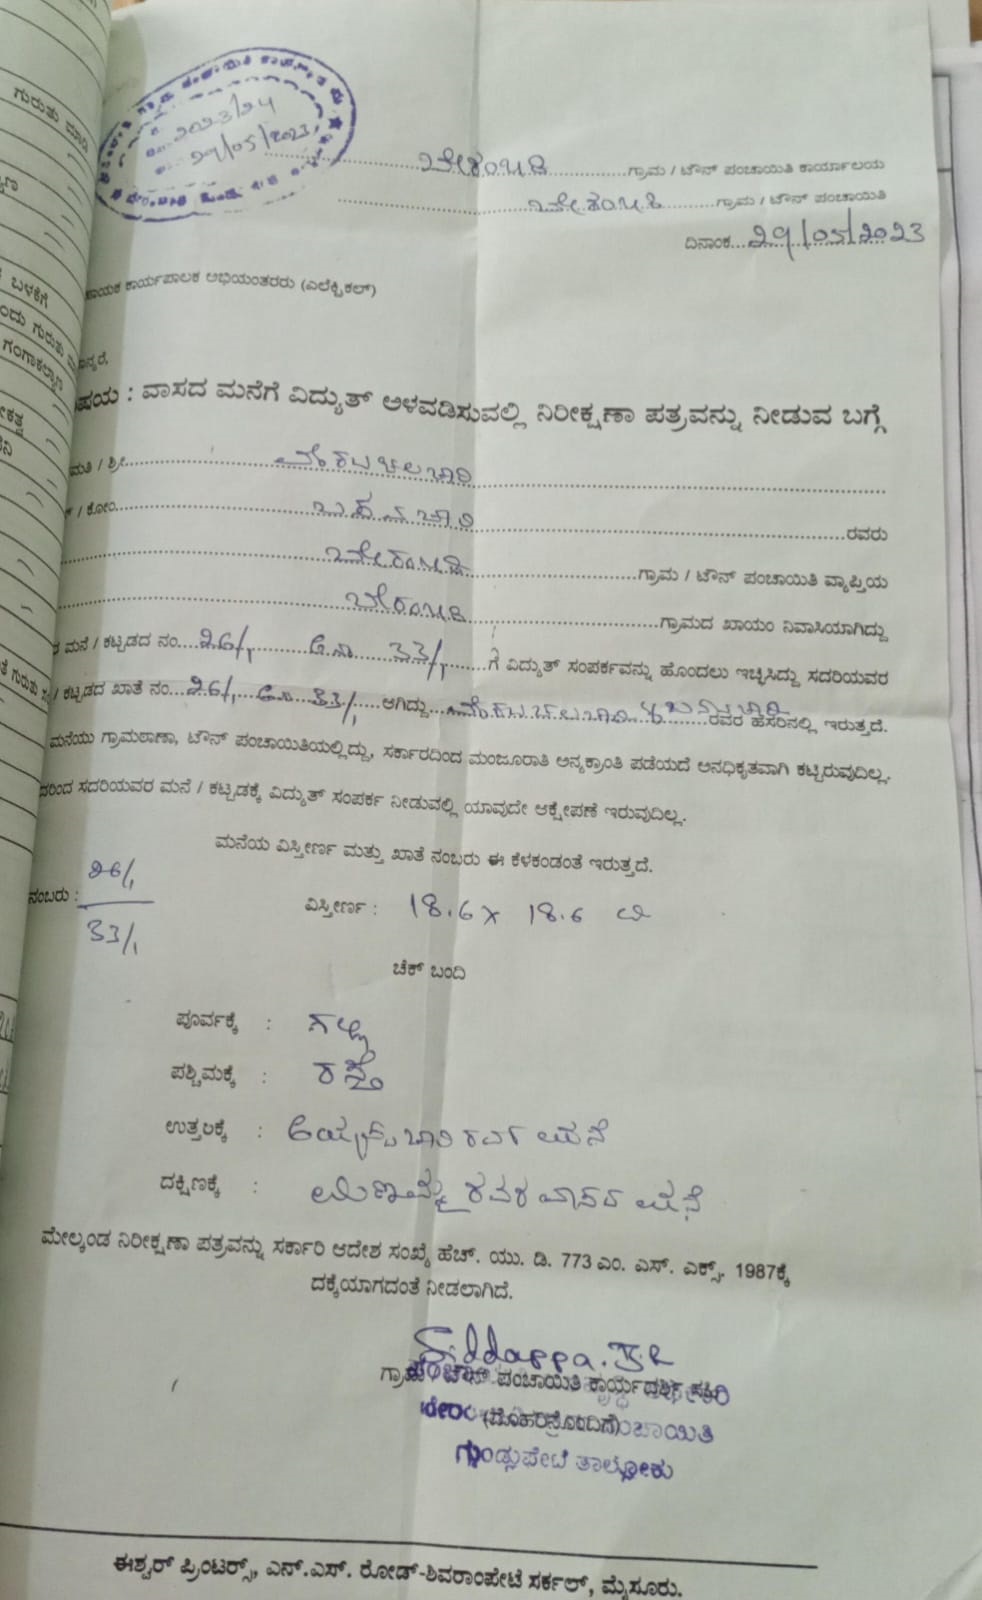 ಗುರುತು ಮಾಡಿ
2023/24
29/05/2023
ಬೇರಂಬಾಡಿ ಗ್ರಾಮ / ಟೌನ್ ಪಂಚಾಯಿತಿ ಕಾರ್ಯಾಲಯ
ಬೇರಂಬಾಡಿ ಗ್ರಾಮ / ಟೌನ್ ಪಂಚಾಯಿತಿ
ದಿನಾಂಕ...29/05/2023
ಕಾರ್ಯಪಾಲಕ ಅಭಿಯಂತರರು (ಎಲೆಕ್ಟ್ರಿಕಲ್)
ಬಳಕೆಗೆ
: ವಾಸದ ಮನೆಗೆ ವಿದ್ಯುತ್ ಅಳವಡಿಸುವಲ್ಲಿ ನಿರೀಕ್ಷಣಾ ಪತ್ರವನ್ನು ನೀಡುವ ಬಗ್ಗೆ
ಮತಿ / ಶ್ರೀ
/ ಕೋಂ ರವರು
ಬೇರಂಬಾಡಿ ಗ್ರಾಮ / ಟೌನ್ ಪಂಚಾಯಿತಿ ವ್ಯಾಪ್ತಿಯ
ಬೇರಂಬಾಡಿ ಗ್ರಾಮದ ಖಾಯಂ ನಿವಾಸಿಯಾಗಿದ್ದು
ಮನೆ / ಕಟ್ಟಡದ ನಂ....26/1 33/1 ಗೆ ವಿದ್ಯುತ್ ಸಂಪರ್ಕವನ್ನು ಹೊಂದಲು ಇಚ್ಛಿಸಿದ್ದು ಸದರಿಯವರ
/ ಕಟ್ಟಡದ ಖಾತೆ ನಂ...26/1 33/1 ಆಗಿದ್ದು ರವರ ಹೆಸರಿನಲ್ಲಿ ಇರುತ್ತದೆ.
ಮನೆಯು ಗ್ರಾಮಠಾಣಾ, ಟೌನ್ ಪಂಚಾಯಿತಿಯಲ್ಲಿದ್ದು, ಸರ್ಕಾರದಿಂದ ಮಂಜೂರಾತಿ ಅನ್ಯಕ್ರಾಂತಿ ಪಡೆಯದೆ ಅನಧಿಕೃತವಾಗಿ ಕಟ್ಟಿರುವುದಿಲ್ಲ.
ದರಿಂದ ಸದರಿಯವರ ಮನೆ / ಕಟ್ಟಡಕ್ಕೆ ವಿದ್ಯುತ್ ಸಂಪರ್ಕ ನೀಡುವಲ್ಲಿ ಯಾವುದೇ ಆಕ್ಷೇಪಣೆ ಇರುವುದಿಲ್ಲ.
ಮನೆಯ ವಿಸ್ತೀರ್ಣ ಮತ್ತು ಖಾತೆ ನಂಬರು ಈ ಕೆಳಕಂಡಂತೆ ಇರುತ್ತದೆ.
ನಂಬರು : 26/1
33/1
ವಿಸ್ತೀರ್ಣ : 18.6 x 18.6
ಚೆಕ್ ಬಂದಿ
ಪೂರ್ವಕ್ಕೆ : ಗಲ್ಲಿ
ಪಶ್ಚಿಮಕ್ಕೆ : ರಸ್ತೆ
ಉತ್ತರಕ್ಕೆ : ರವರ ಮನೆ
ದಕ್ಷಿಣಕ್ಕೆ : ರವರ ವಾಸದ ಮನೆ
ಮೇಲ್ಕಂಡ ನಿರೀಕ್ಷಣಾ ಪತ್ರವನ್ನು ಸರ್ಕಾರಿ ಆದೇಶ ಸಂಖ್ಯೆ ಹೆಚ್. ಯು. ಡಿ. 773 ಎಂ. ಎಸ್. ಎಕ್ಸ್. 1987ಕ್ಕೆ
ದಕ್ಕೆಯಾಗದಂತೆ ನೀಡಲಾಗಿದೆ.
Siddappa. K.R
ಗ್ರಾಮ / ಟೌನ್ ಪಂಚಾಯಿತಿ ಕಾರ್ಯದರ್ಶಿ ಸಹಿ
(ಮೊಹರಿನೊಂದಿಗೆ)
ಗುಂಡ್ಲುಪೇಟೆ ತಾಲ್ಲೋಕು
ಈಶ್ವರ್ ಪ್ರಿಂಟರ್ಸ್, ಎನ್.ಎಸ್. ರೋಡ್-ಶಿವರಾಂಪೇಟೆ ಸರ್ಕಲ್, ಮೈಸೂರು.